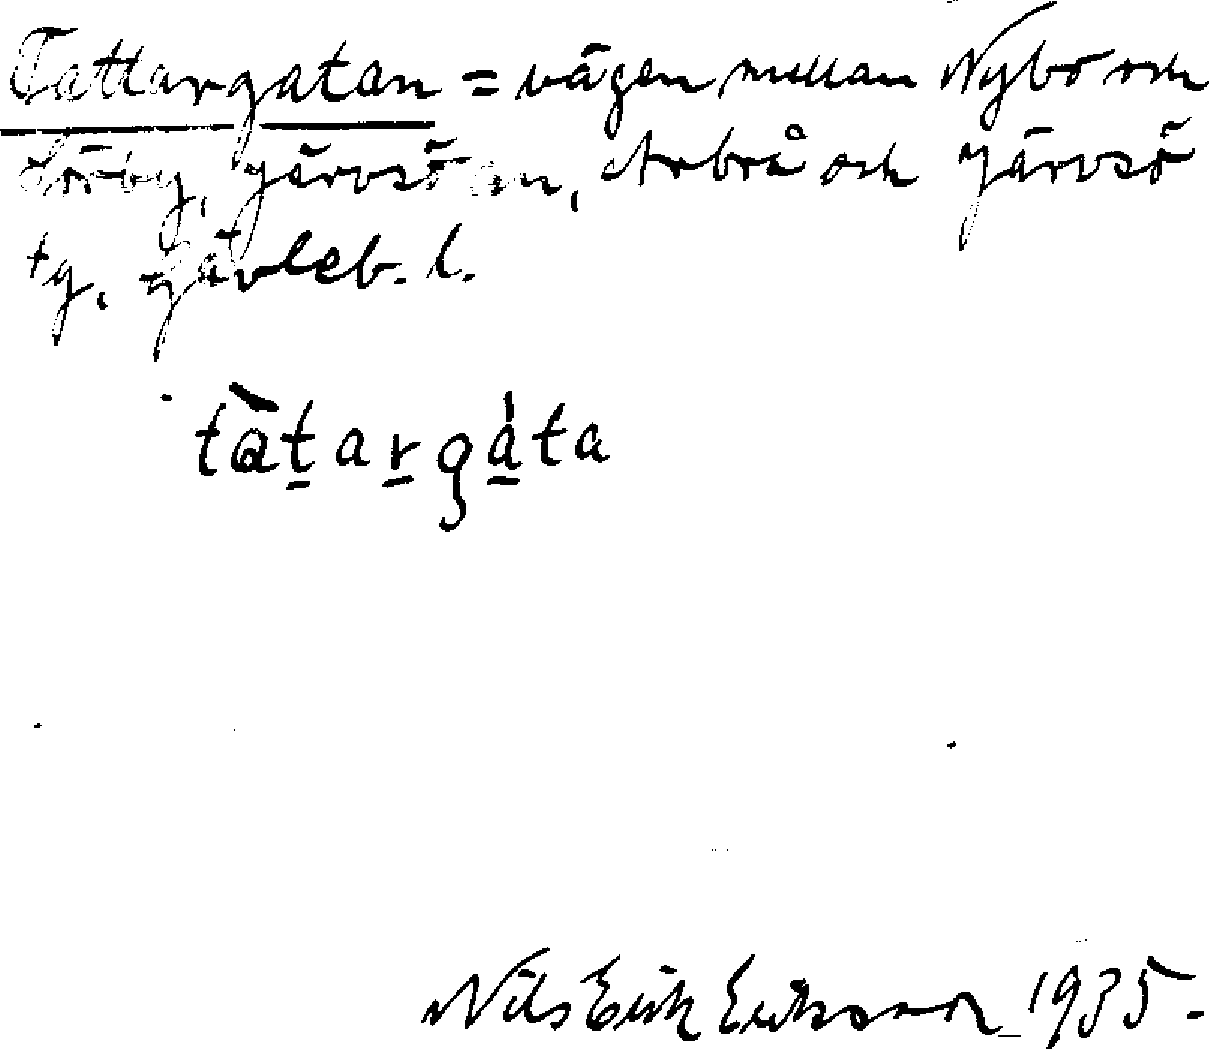 Tattargatan = vägen mellan Nybo och
Sörby, Järvsö sn, Arbrå och Järvsö
tg, Gävleb. l.
tàtargáta
Nils Erik Eriksson 1935.